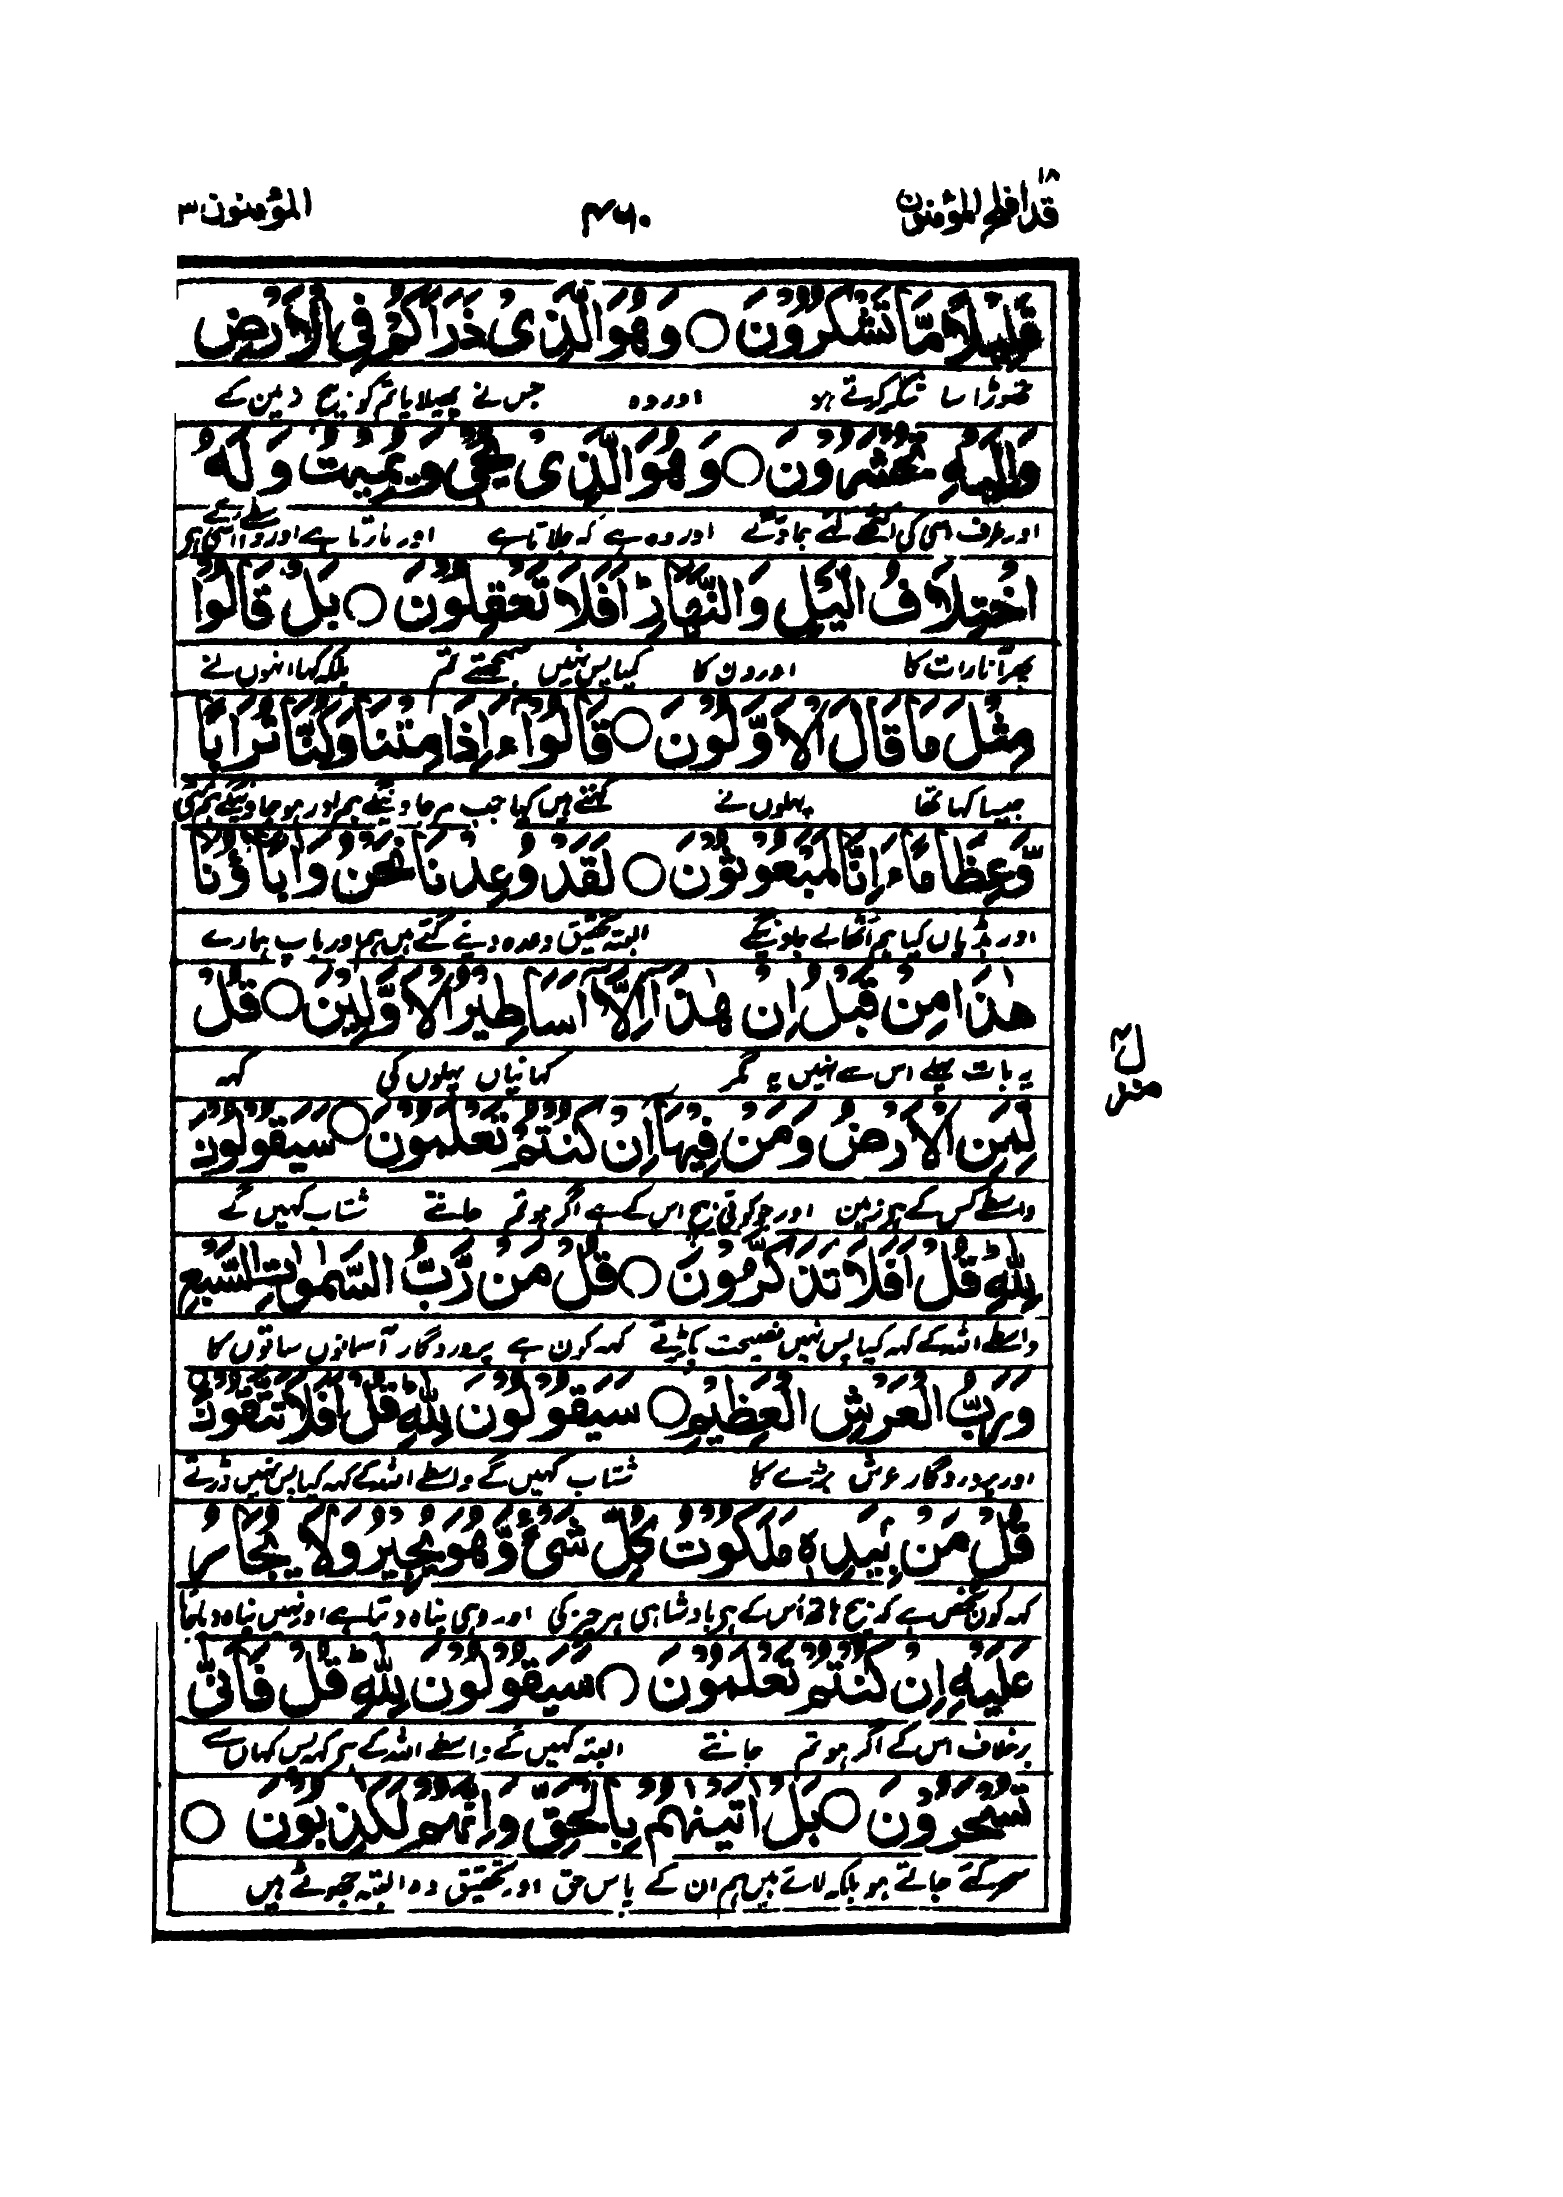 قد افلح المؤمنون ١٨
٤٦٠
المؤمنون ٢٣
قَلِيْلًا مَّا تَشْكُرُوْنَ ○ وَهُوَ الَّذِيْ ذَرَاَكُمْ فِي الْاَرْضِ
تھوڑا سا شکر کرتے ہو اور وہ جس نے پھیلایا تم کو بیچ زمین کے
وَاِلَيْهِ تُحْشَرُوْنَ ○ وَهُوَ الَّذِيْ يُحْيٖ وَيُمِيْتُ وَلَهُ
اور طرف اسی کی اکٹھے کئے جاؤگے اور وہ ہے کہ جلاتا ہے اور مارتا ہے اور واسطے اسی کے ہے
اخْتِلَافُ الَّيْلِ وَالنَّهَارِ ؕ اَفَلَا تَعْقِلُوْنَ ○ بَلْ قَالُوْا
پھر آنا رات کا اور دن کا کیا پس نہیں سمجھتے تم بلکہ کہا انہوں نے
مِثْلَ مَا قَالَ الْاَوَّلُوْنَ ○ قَالُوْٓا ءَاِذَا مِتْنَا وَكُنَّا تُرَابًا
جیسا کہا تھا پہلوں نے کہتے ہیں کیا جب مر جاوینگے ہم اور ہو جاوینگے ہم مٹی
وَّعِظَامًا ءَاِنَّا لَمَبْعُوْثُوْنَ ○ لَقَدْ وُعِدْنَا نَحْنُ وَاٰبَآؤُنَا
اور ہڈیاں کیا ہم اٹھائے جاوینگے البتہ تحقیق وعدہ دیئے گئے ہیں ہم اور باپ ہمارے
هٰذَا مِنْ قَبْلُ اِنْ هٰذَآ اِلَّآ اَسَاطِيْرُ الْاَوَّلِيْنَ ○ قُلْ
یہ بات پہلے اس سے نہیں یہ مگر کہانیاں پہلوں کی کہہ
لِّمَنِ الْاَرْضُ وَمَنْ فِيْهَآ اِنْ كُنْتُمْ تَعْلَمُوْنَ ○ سَيَقُوْلُوْنَ
واسطے کس کے ہے زمین اور جو کوئی بیچ اس کے ہے اگر ہو تم جانتے شتاب کہیں گے
لِلّٰهِ ؕ قُلْ اَفَلَا تَذَكَّرُوْنَ ○ قُلْ مَنْ رَّبُّ السَّمٰوٰتِ السَّبْعِ
واسطے اللہ کے کہہ کیا پس نہیں نصیحت پکڑتے کہہ کون ہے پروردگار آسمانوں ساتوں کا
وَرَبُّ الْعَرْشِ الْعَظِيْمِ ○ سَيَقُوْلُوْنَ لِلّٰهِ ؕ قُلْ اَفَلَا تَتَّقُوْنَ
اور پروردگار عرش بڑے کا شتاب کہیں گے واسطے اللہ کے کہہ کیا پس نہیں ڈرتے
قُلْ مَنْۢ بِيَدِهٖ مَلَكُوْتُ كُلِّ شَيْءٍ وَّهُوَ يُجِيْرُ وَلَا يُجَارُ
کہہ کون شخص ہے کہ بیچ ہاتھ اس کے ہے بادشاہی ہر چیز کی اور وہی پناہ دیتا ہے اور نہیں پناہ دیا جاتا
عَلَيْهِ اِنْ كُنْتُمْ تَعْلَمُوْنَ ○ سَيَقُوْلُوْنَ لِلّٰهِ ؕ قُلْ فَاَنّٰى
برخلاف اس کے اگر ہو تم جانتے البتہ کہیں گے واسطے اللہ کے ہے کہہ پس کہاں سے
تُسْحَرُوْنَ ○ بَلْ اَتَيْنٰهُمْ بِالْحَقِّ وَاِنَّهُمْ لَكٰذِبُوْنَ ○
سحر کئے جاتے ہو بلکہ لائے ہیں ہم ان کے پاس حق اور تحقیق وہ البتہ جھوٹے ہیں
منزل ٤